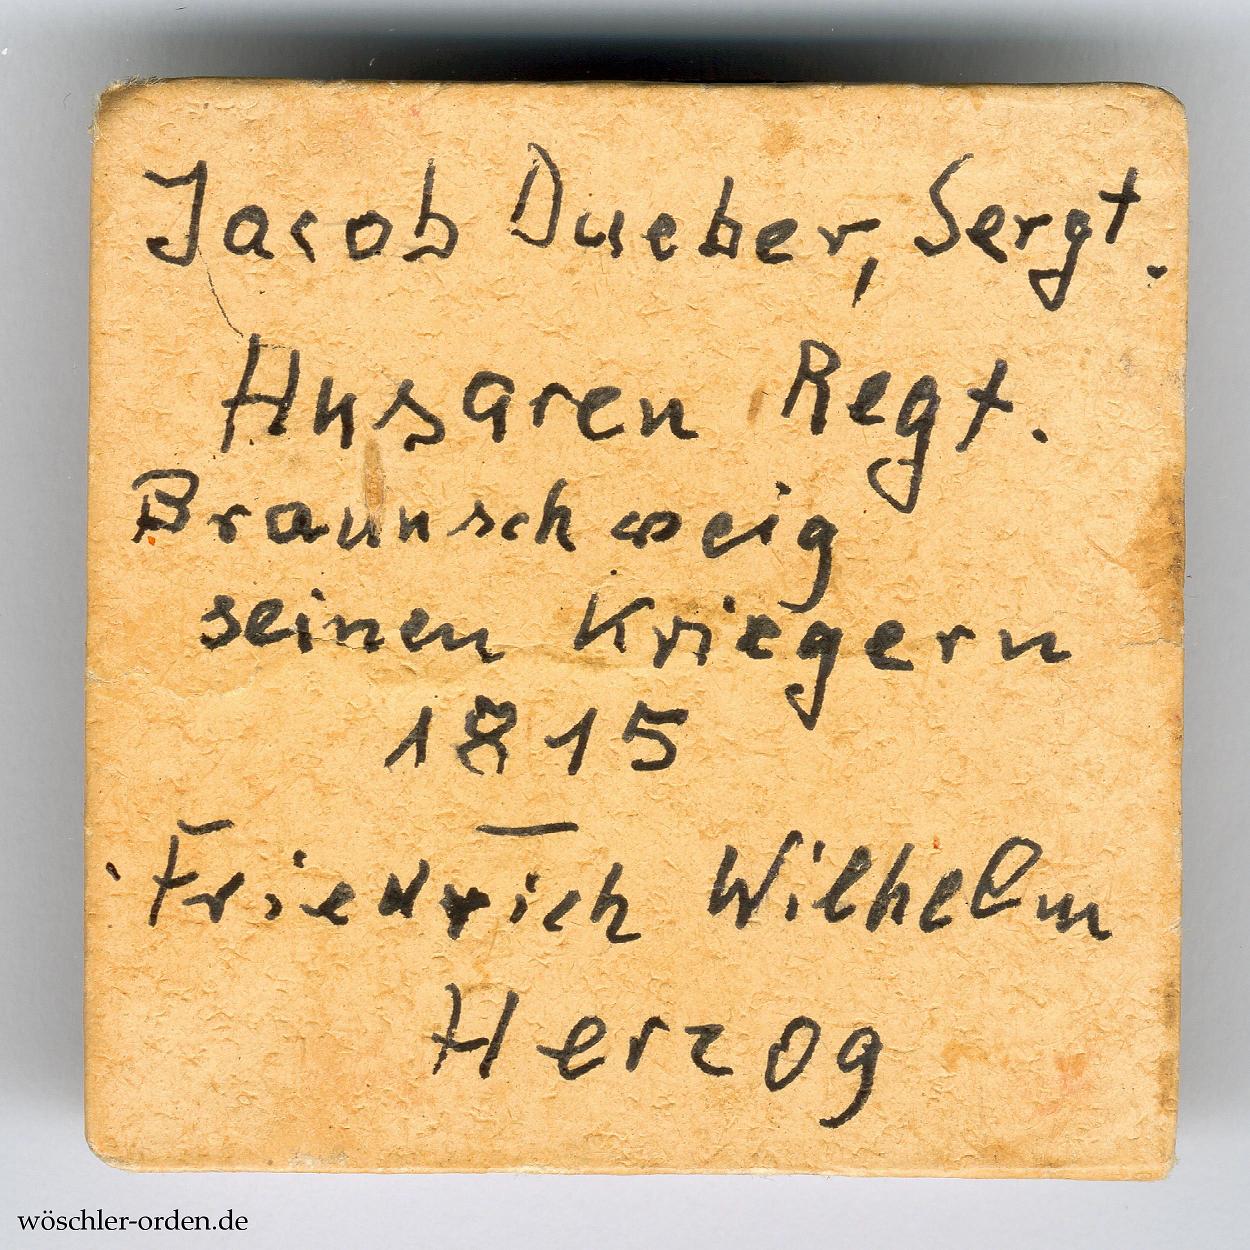 Jacob Dueber, Sergt.
Husaren Regt.
Braunschweig
seinen Kriegern
1815
—
Friedrich Wilhelm
Herzog
wöschler-orden.de